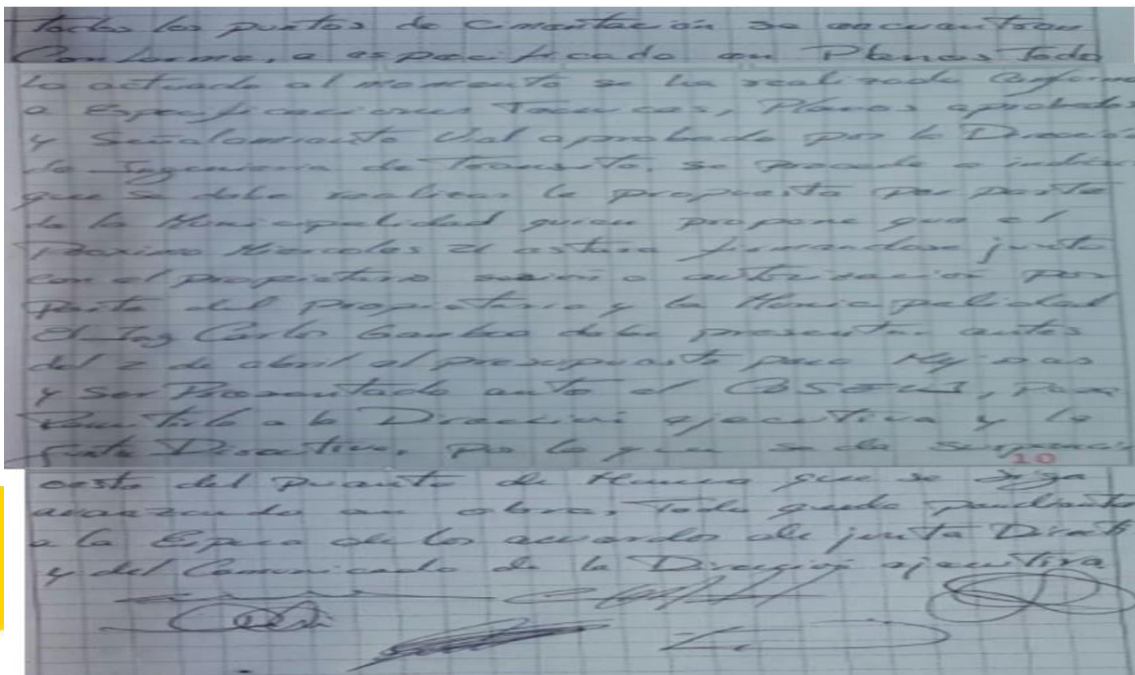 Todos los puntos de Cimentación se encuentran
Conforme, a especificado en Planos Todo
Lo actuado al momento se ha realizado Conforme
a Especificaciones Tecnicas, Planos aprobados
y Señalamiento Vial aprobado por la Dirección
de Ingenieria de Transito, se procede a indicar
que se debe realizar la propuesta por parte
de la Municipalidad quien propone que el
Proximo Miercoles 21 estara firmandose junto
con el Propietario autorización por
Parte del Propietario y la Municipalidad
El Ing Carlo Gamboa debe presentar antes
del 2 de abril el presupuesto para
y ser Presentado ante el COSEVI, para
Remitirlo a la Dirección ejecutiva y la
junta Directiva, por lo que se da Suspensión
10
oeste del Puente de Manera que se siga
avanzando en obras, Todo queda pendiente
a la Espera de los acuerdos de junta Directi
y del Comunicado de la Dirección ejecutiva